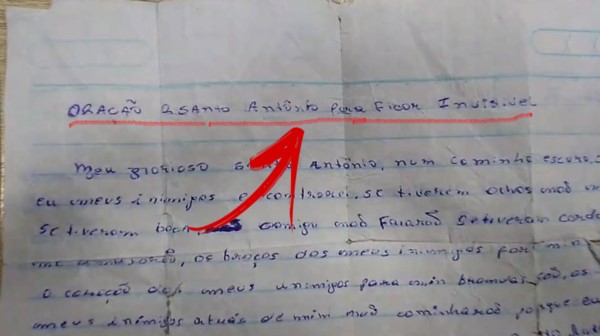 ORAÇÃO D SAnto Antônio Para Ficar Invisivel
Meu glorioso Antônio, num caminho escuro,
eu meus inimigos encontrarei, se tiverem olhos
se tiverem boca, comigo não Falarão Se tiverem corda
os braços dos meus inimigos
o coração dos meus inimigos para mim
meus inimigos atrás de mim não caminharão porque eu